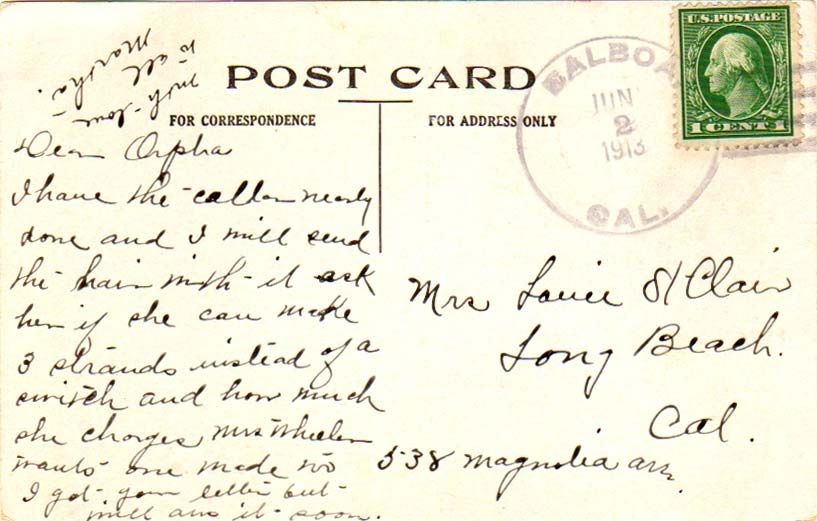 POST CARD
FOR CORRESPONDENCE
FOR ADDRESS ONLY
BALBOA
JUN
2
1913
CAL.
U.S. POSTAGE
1 CENT 1
Dear Orpha
I have the collar nearly
done and I will send
the hair with it ask
her if she can make
3 strands instead of a
switch and how much
she charges Mrs Wheeler
wants one made too
I got your letter but
will ans it soon.
with love
to all
Martha.
Mrs Louie St Clair
Long Beach.
Cal.
538 Magnolia ave.